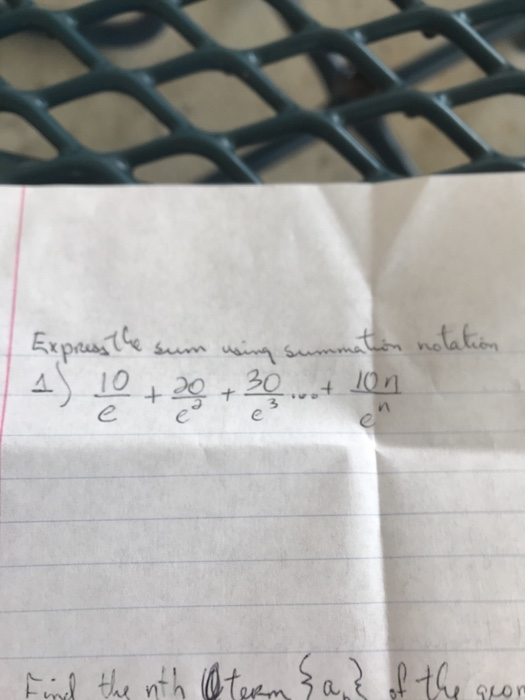 Express the sum using summation notation
1) 10/e + 20/e² + 30/e³ ...+ 10n/eⁿ
Find the nth term {aₙ} of the